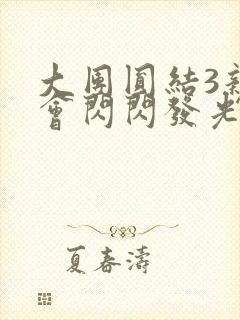 大團圓結3
會閃閃發光
夏春濤